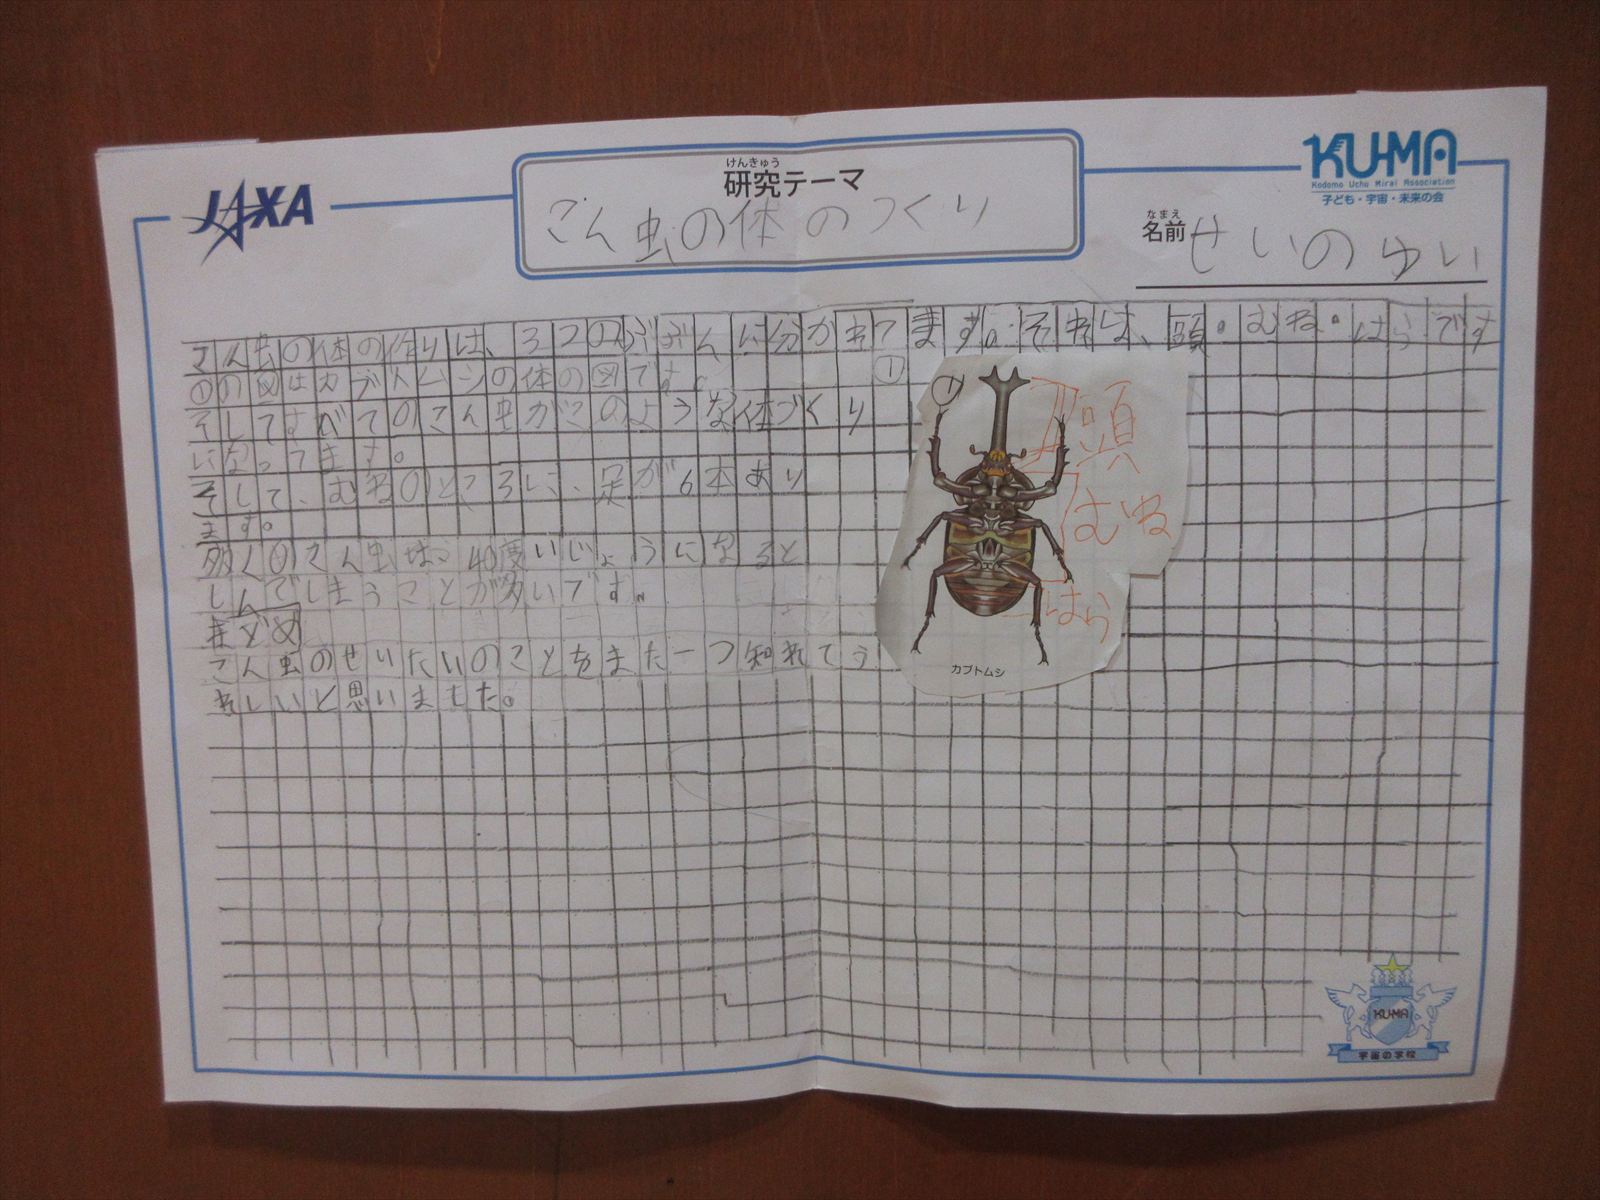 JAXA
けんきゅう
研究テーマ
こん虫の体のつくり
KU-MA
Kodomo Uchu Mirai Association
子ども・宇宙・未来の会
なまえ
名前 せいのゆい
こん虫の体の作りは、3つのぶぶんに分かれてます。それは、頭・むね・はらです
①の図はカブトムシの体の図です。 ①
そしてすべてのこん虫がこのような体づくり
になってます。
そして、むねのところに、足が6本あり
ます。
多くのこん虫は、40度いじょうになると
しんでしまうことが多いです。
まとめ
こん虫のせいたいのことをまた一つ知れてう
れしいと思いました。
①
頭
むね
はら
カブトムシ
KU-MA
宇宙の学校